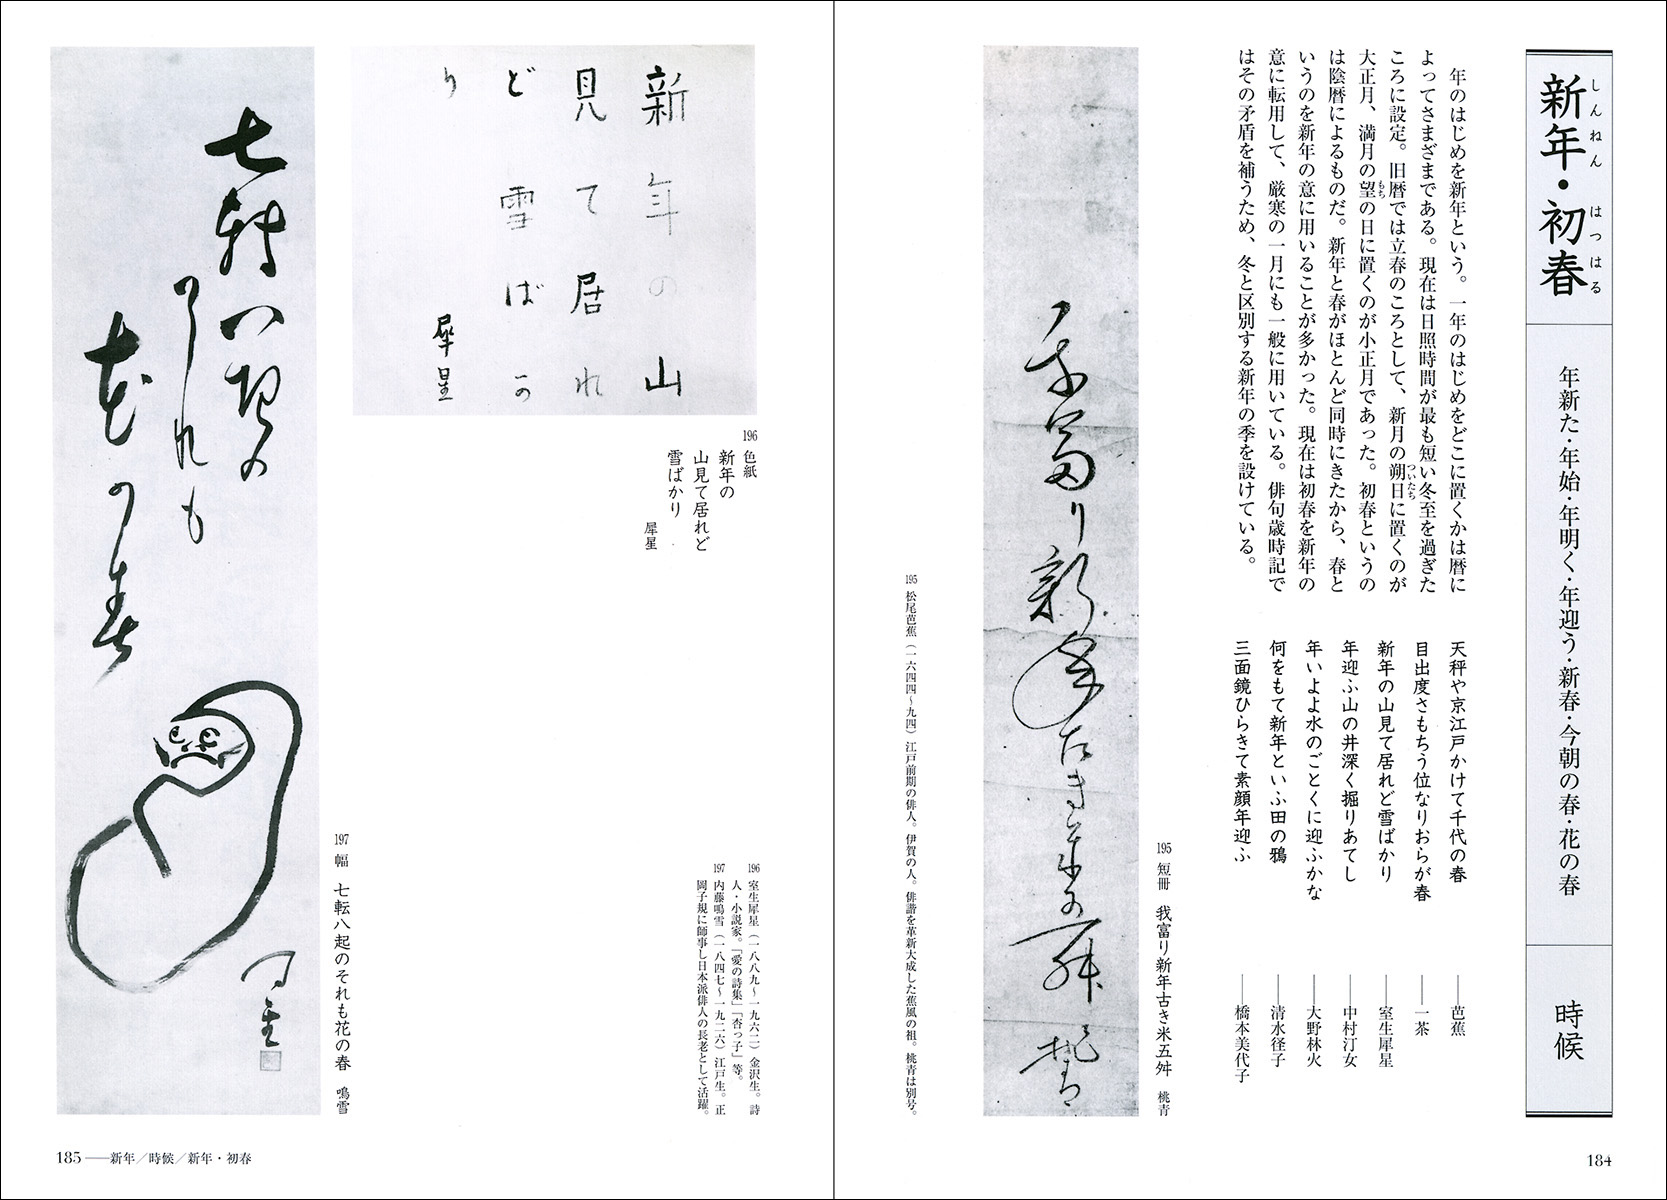 新年・初春
しんねん はつはる
年新た・年始・年明く・年迎う・新春・今朝の春・花の春
時候
年のはじめを新年という。一年のはじめをどこに置くかは暦に
よってさまざまである。現在は日照時間が最も短い冬至を過ぎた
ころに設定。旧暦では立春のころとして、新月の朔日に置くのが
ついたち
大正月、満月の望の日に置くのが小正月であった。初春というの
もち
は陰暦によるものだ。新年と春がほとんど同時にきたから、春と
いうのを新年の意に用いることが多かった。現在は初春を新年の
意に転用して、厳寒の一月にも一般に用いている。俳句歳時記で
はその矛盾を補うため、冬と区別する新年の季を設けている。
天秤や京江戸かけて千代の春 ──芭蕉
目出度さもちう位なりおらが春 ──一茶
新年の山見て居れど雪ばかり ──室生犀星
年迎ふ山の井深く掘りあてし ──中村汀女
年いよよ水のごとくに迎ふかな ──大野林火
何をもて新年といふ田の鴉 ──清水径子
三面鏡ひらきて素顔年迎ふ ──橋本美代子
195 短冊 我富り新年古き米五舛 桃青
我富り新年古き米五舛 桃青
195 松尾芭蕉（一六四四〜九四）江戸前期の俳人。伊賀の人。俳諧を革新大成した蕉風の祖。桃青は別号。
184
新年の山
見て居れ
ど雪ばか
り
犀星
196 色紙
新年の
山見て居れど
雪ばかり
犀星
196 室生犀星（一八八九〜一九六二）金沢生。詩
人・小説家。「愛の詩集」「杏っ子」等。
197 内藤鳴雪（一八四七〜一九二六）江戸生。正
岡子規に師事し日本派俳人の長老として活躍。
197 幅 七転八起のそれも花の春 鳴雪
七転八起の
それも
花の春
185──新年／時候／新年・初春